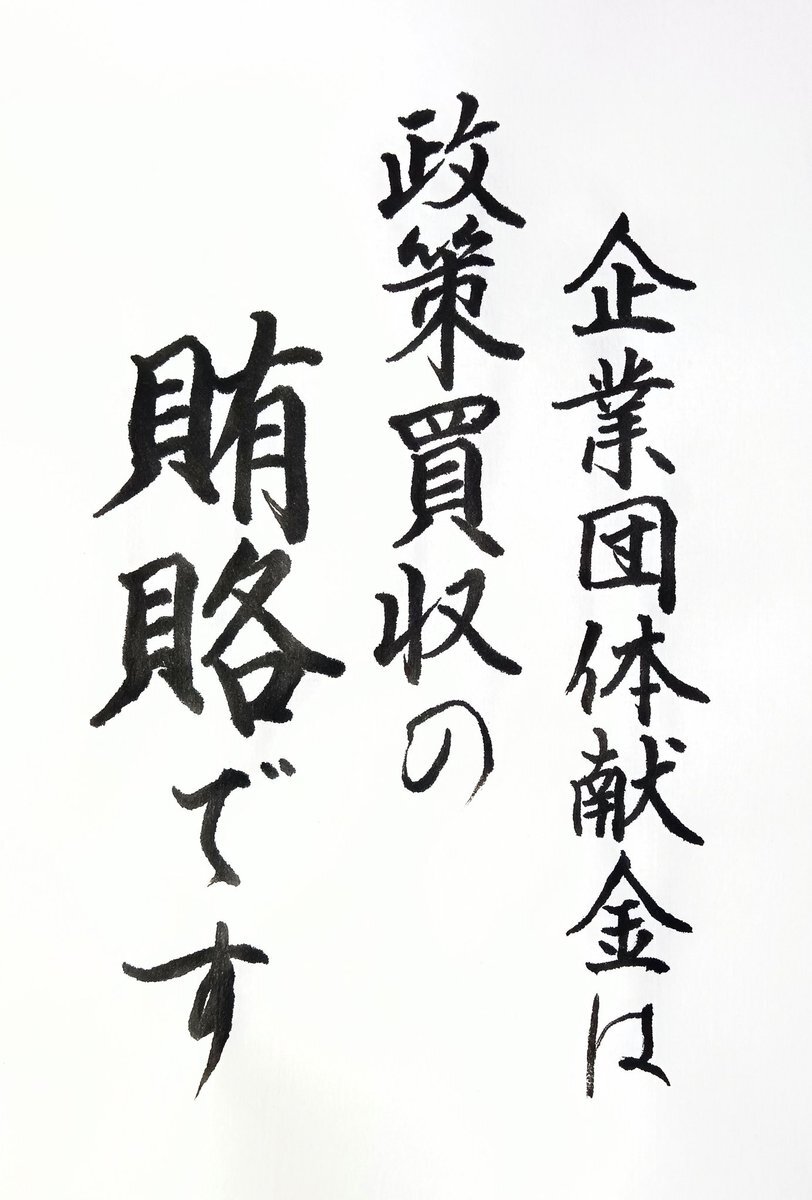 企業団体献金は
政策買収の
賄賂です